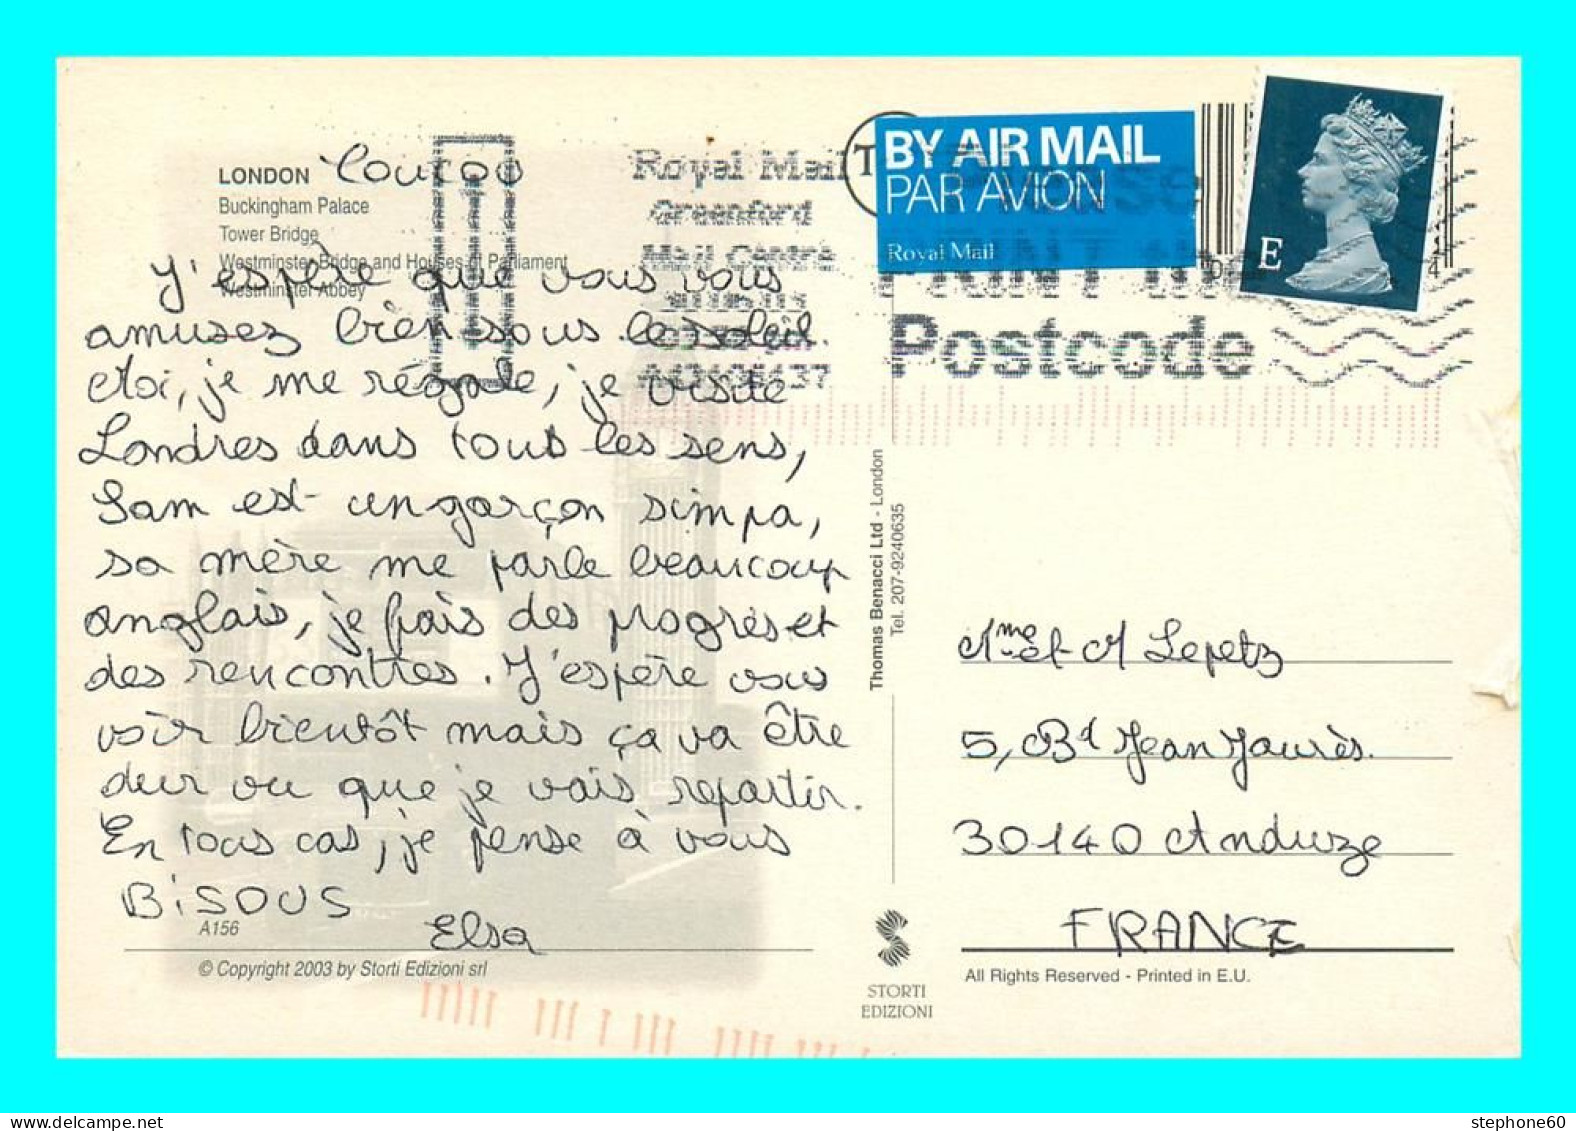 LONDON
Coucou
Buckingham Palace
Tower Bridge
Westminster Bridge and Houses of Parliament
Westminster Abbey
J'espère que vous vous
amusez bien sous le soleil.
Moi, je me régale, je visite
Londres dans tous les sens,
Sam est un garçon simpa,
sa mère me parle beaucoup
anglais, je fais des progrès et
des rencontres. J'espère vous
voir bientôt mais ça va être
dur vu que je vais repartir.
En tous cas, je pense à vous
BISOUS
Elsa
A156
© Copyright 2003 by Storti Edizioni srl
Royal Mail
Greenford
Mail Centre
BY AIR MAIL
PAR AVION
Royal Mail
E
Postcode
Thomas Benacci Ltd - London
Tel. 207-9240635
Mme et M Lepetz
5, Bd Jean Jaurès.
30140 Anduze
FRANCE
All Rights Reserved - Printed in E.U.
STORTI
EDIZIONI
stephone60